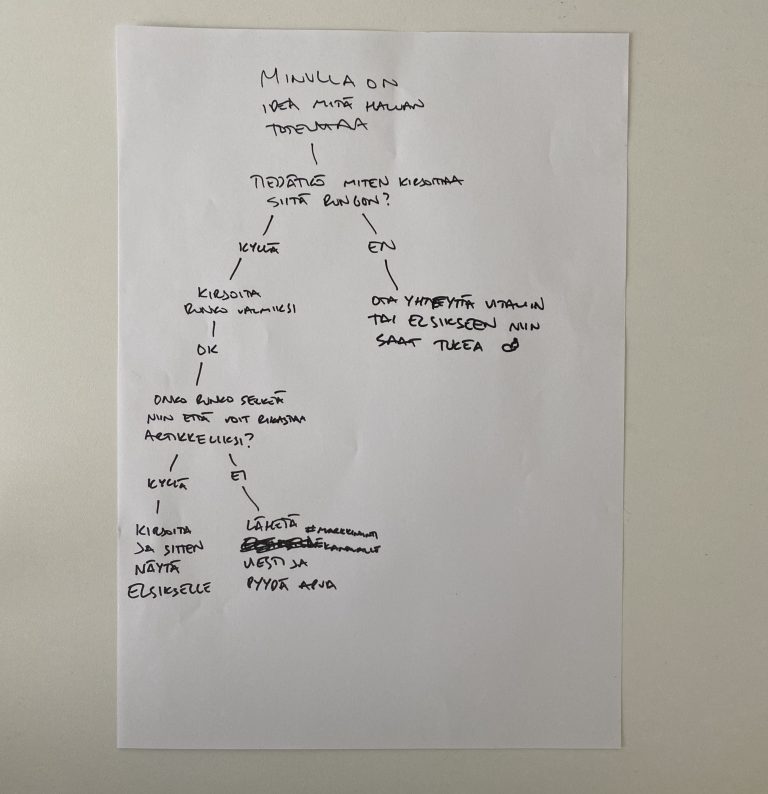 MINULLA ON
IDEA MITÄ HALUAN
TOTEUTTAA
TIEDÄTKÖ MITEN KIRJOITTAA
SIITÄ RUNGON?
KYLLÄ
EN
KIRJOITA
RUNKO VALMIKSI
OTA YHTEYTTÄ VITALIIN
TAI ELSIKSEEN NIIN
SAAT TUKEA
OK
ONKO RUNKO SELKEÄ
NIIN ETTÄ VOIT RIKASTAA
ARTIKKELIKSI?
KYLLÄ
EI
KIRJOITA
JA SITTEN
NÄYTÄ
ELSIKSELLE
LÄHETÄ #MARKKINOINTI
KANAVALLE
VIESTI JA
PYYDÄ APUA